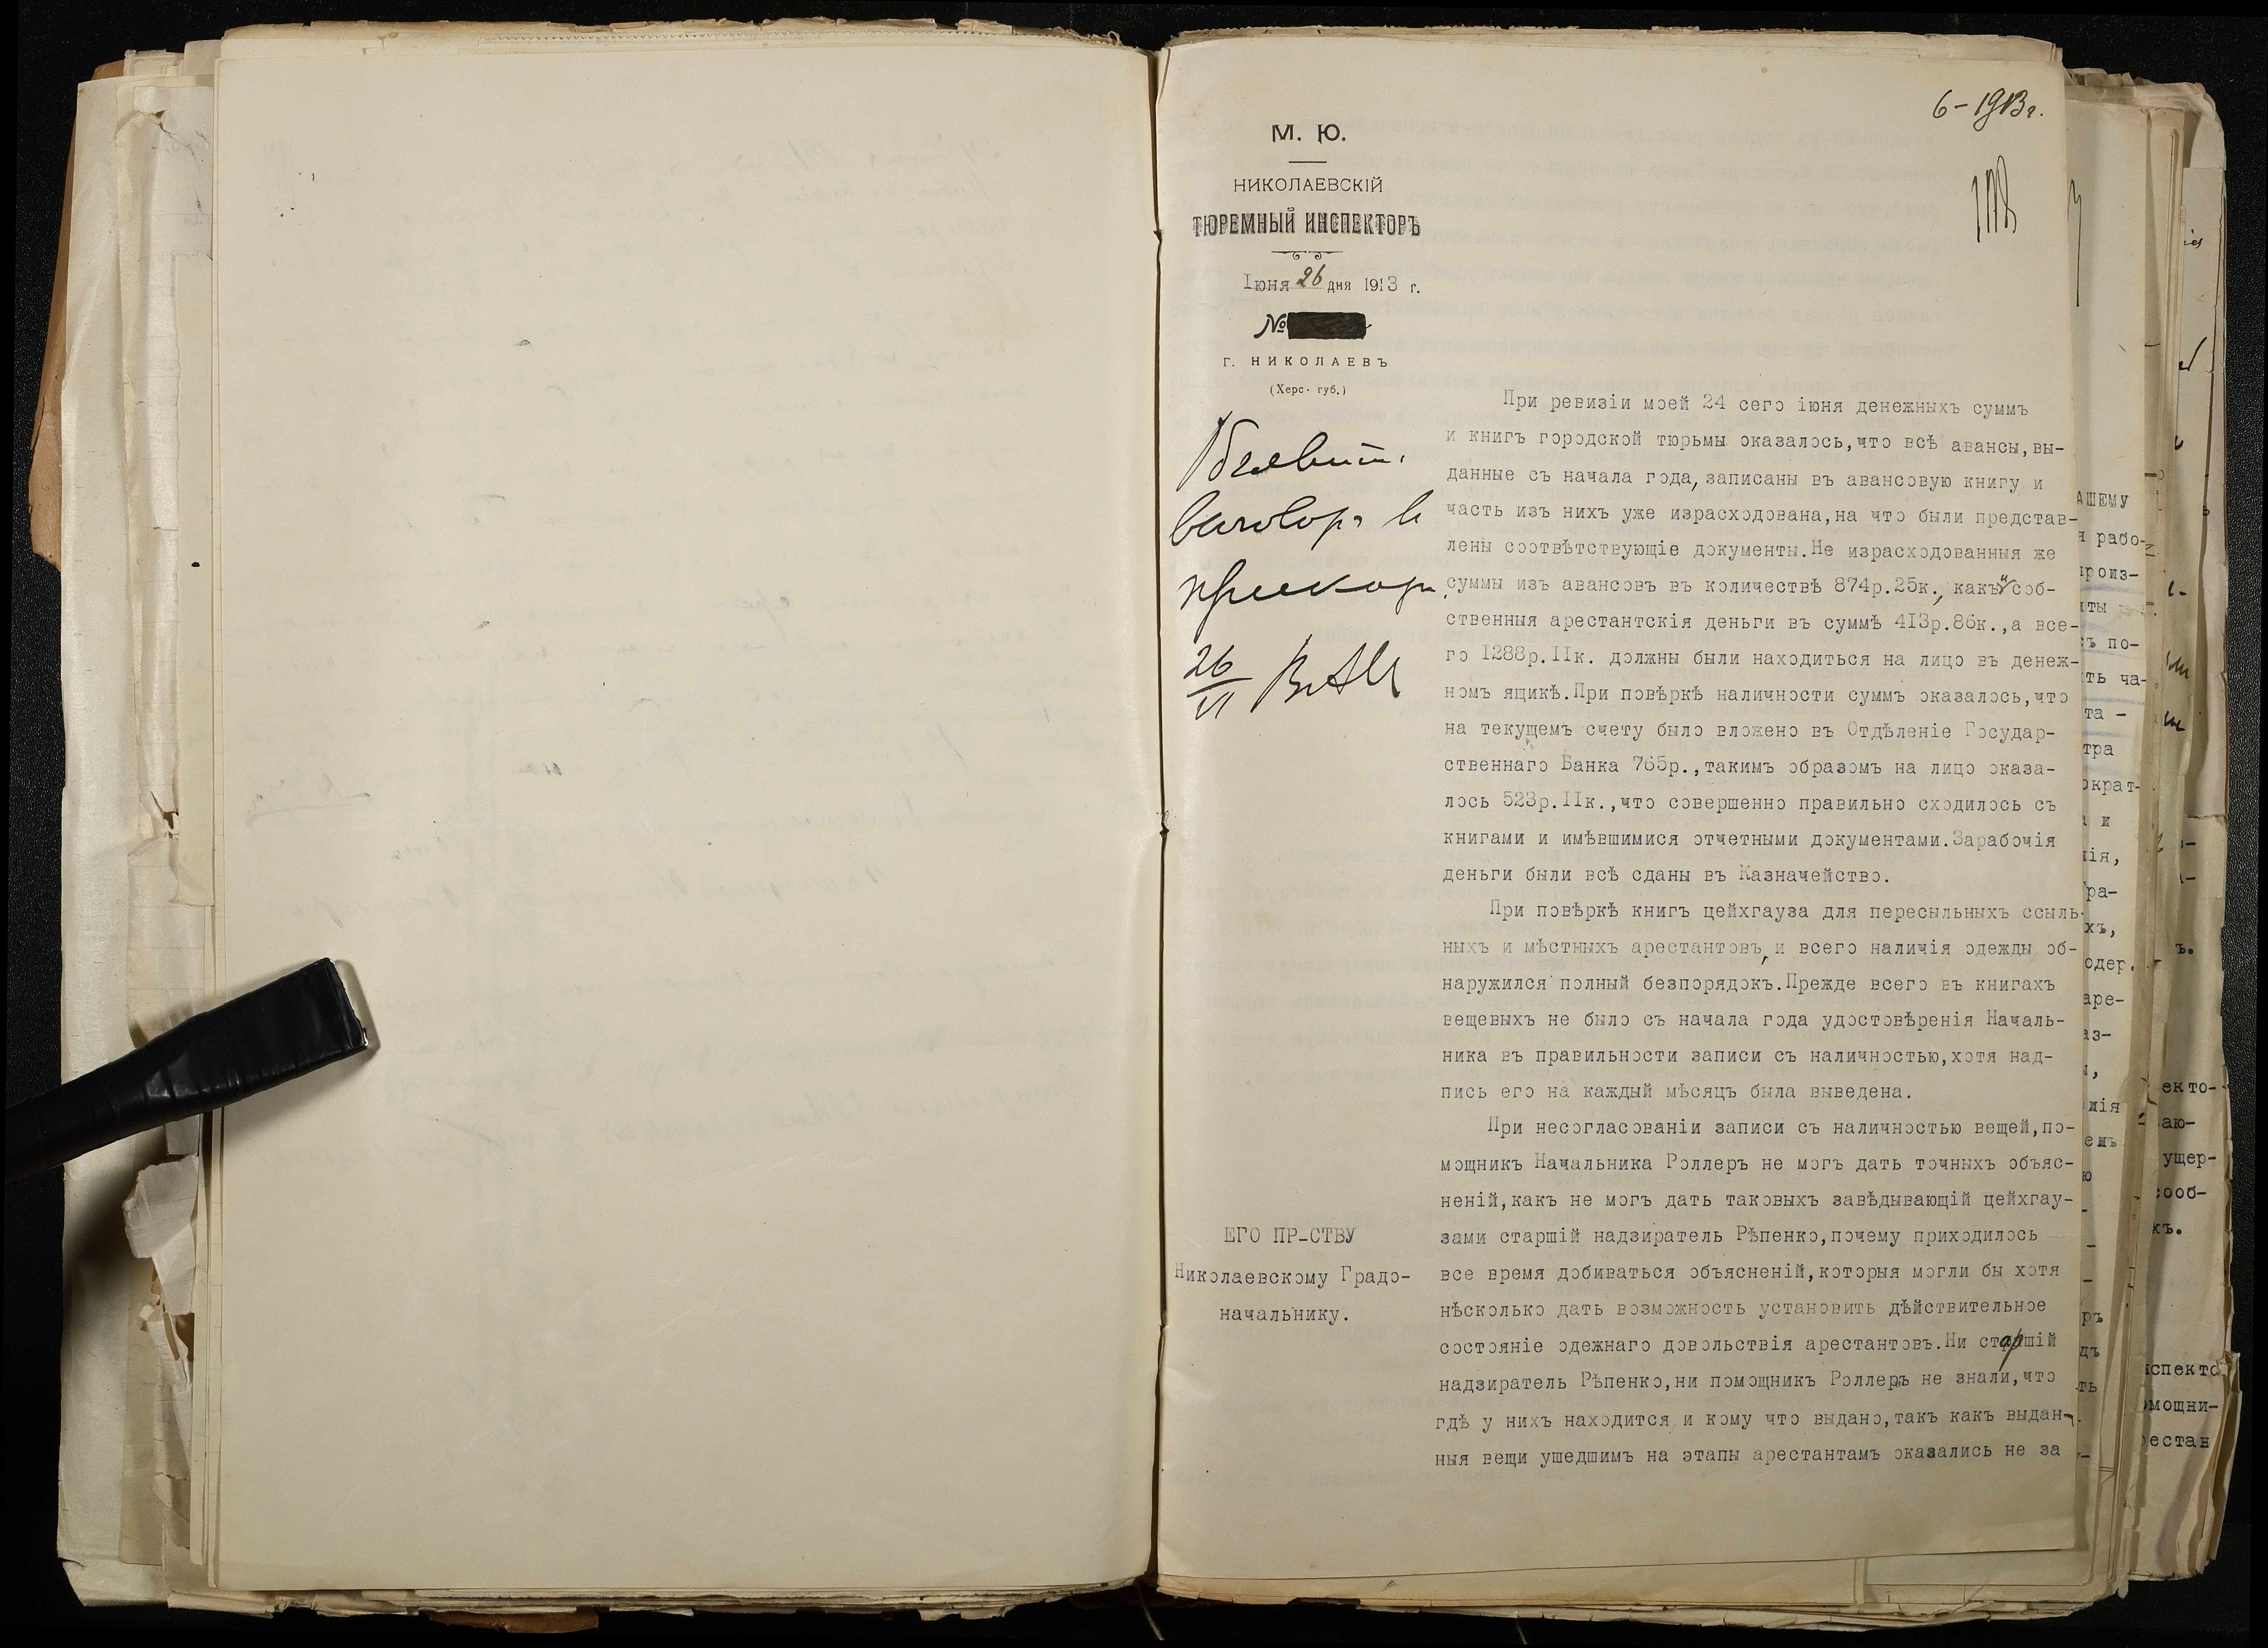 6-1913г.
М. Ю.
НИКОЛАЕВСКІЙ
ТЮРЕМНЫЙ ИНСПЕКТОРЪ
Іюня 26 дня 1913 г.
№
Г. НИКОЛАЕВЪ
(Херс. губ.)
выговоръ в
26
VI
ЕГО ПР-СТВУ
Николаевскому Градо-
начальнику.
При ревизіи моей 24 сего іюня денежныхъ суммъ
и книгъ городской тюрьмы оказалось,что всѣ авансы,вы-
данные съ начала года,записаны въ авансовую книгу и
часть изъ нихъ уже израсходована,на что были представ-
лены соотвѣтствующіе документы.Не израсходованныя же
суммы изъ авансовъ въ количествѣ 874р.25к., какъ и соб-
ственныя арестантскія деньги въ суммѣ 413р.86к.,а все-
го 1288р.IIк. должны были находиться на лицо въ денеж-
номъ ящикѣ.При повѣркѣ наличности суммъ оказалось,что
на текущемъ счету было вложено въ Отдѣленіе Государ-
ственнаго Банка 765р.,такимъ образомъ на лицо оказа-
лось 523р.IIк.,что совершенно правильно сходилось съ
книгами и имѣвшимися отчетными документами.Зарабочія
деньги были всѣ сданы въ Казначейство.
При повѣркѣ книгъ цейхгауза для пересыльныхъ ссыль-
ныхъ и мѣстныхъ арестантовъ,и всего наличія одежды об-
наружился полный безпорядокъ.Прежде всего въ книгахъ
вещевыхъ не было съ начала года удостовѣренія Началь-
ника въ правильности записи съ наличностью,хотя над-
пись его на каждый мѣсяцъ была выведена.
При несогласованіи записи съ наличностью вещей,по-
мощникъ Начальника Роллеръ не могъ дать точныхъ объяс-
неній,какъ не могъ дать таковыхъ завѣдывающій цейхгау-
зами старшій надзиратель Рѣпенко,почему приходилось
все время добиваться объясненій,которыя могли бы хотя
нѣсколько дать возможность установить дѣйствительное
состояніе одежнаго довольствія арестантовъ.Ни старшій
надзиратель Рѣпенко,ни помощникъ Роллеръ не знали,что
гдѣ у нихъ находится и кому что выдано,такъ какъ выдан-
ныя вещи ушедшимъ на этапы арестантамъ оказались не за